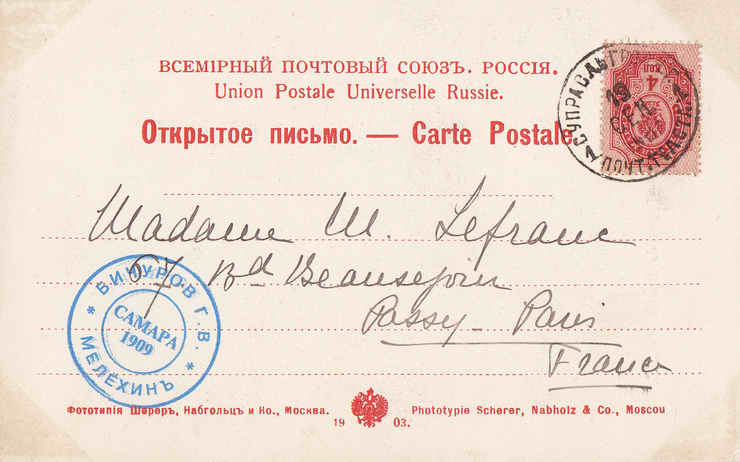 ВСЕМІРНЫЙ ПОЧТОВЫЙ СОЮЗЪ. РОССІЯ.
Union Postale Universelle Russie.
Открытое письмо. — Carte Postale.
4 КОП
19
СЕН
1
ПОЧТ.
Madame M. Lefranc
67 Bd Beausejour
Passy - Paris
France
БИЧУРОВ Г. В.
САМАРА
1909
* МЕЛЁХИНЪ *
Фототипія Шереръ, Набгольцъ и Ко., Москва. Phototypie Scherer, Nabholz & Co., Moscou
19 03.